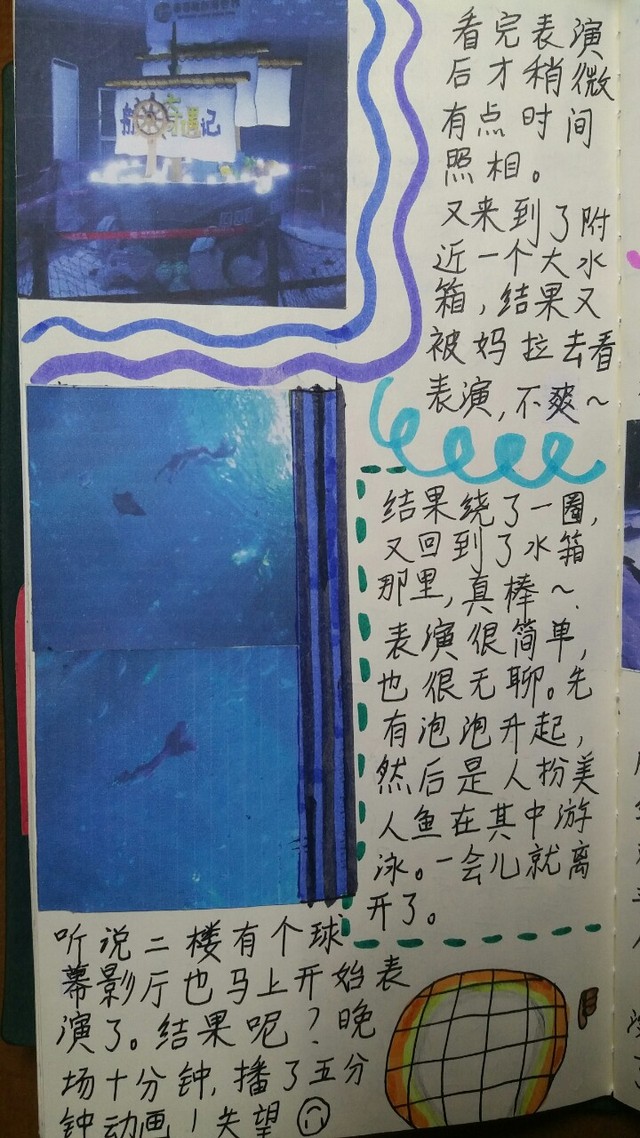 奇遇记
看完表演
后才稍微
有点时间
照相。
又来到了附
近一个大水
箱,结果又
被妈拉去看
表演,不爽~
结果绕了一圈,
又回到了水箱
那里,真棒~.
表演很简单,
也很无聊。先
有泡泡升起,
然后是人扮美
人鱼在其中游
泳。一会儿就离
开了。
听说二楼有个球
幕影厅也马上开始表
演了。结果呢?晚
场十分钟,播了五分
钟动画!失望